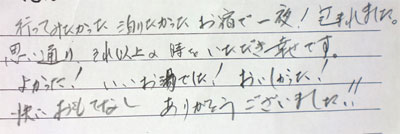 行ってみたかった 泊りたかった お宿で一夜！包まれました。
思い通り、それ以上の時をいただき幸せです。
よかった！いいお湯でした！おいしかった！
快いおもてなし ありがとうございました!!